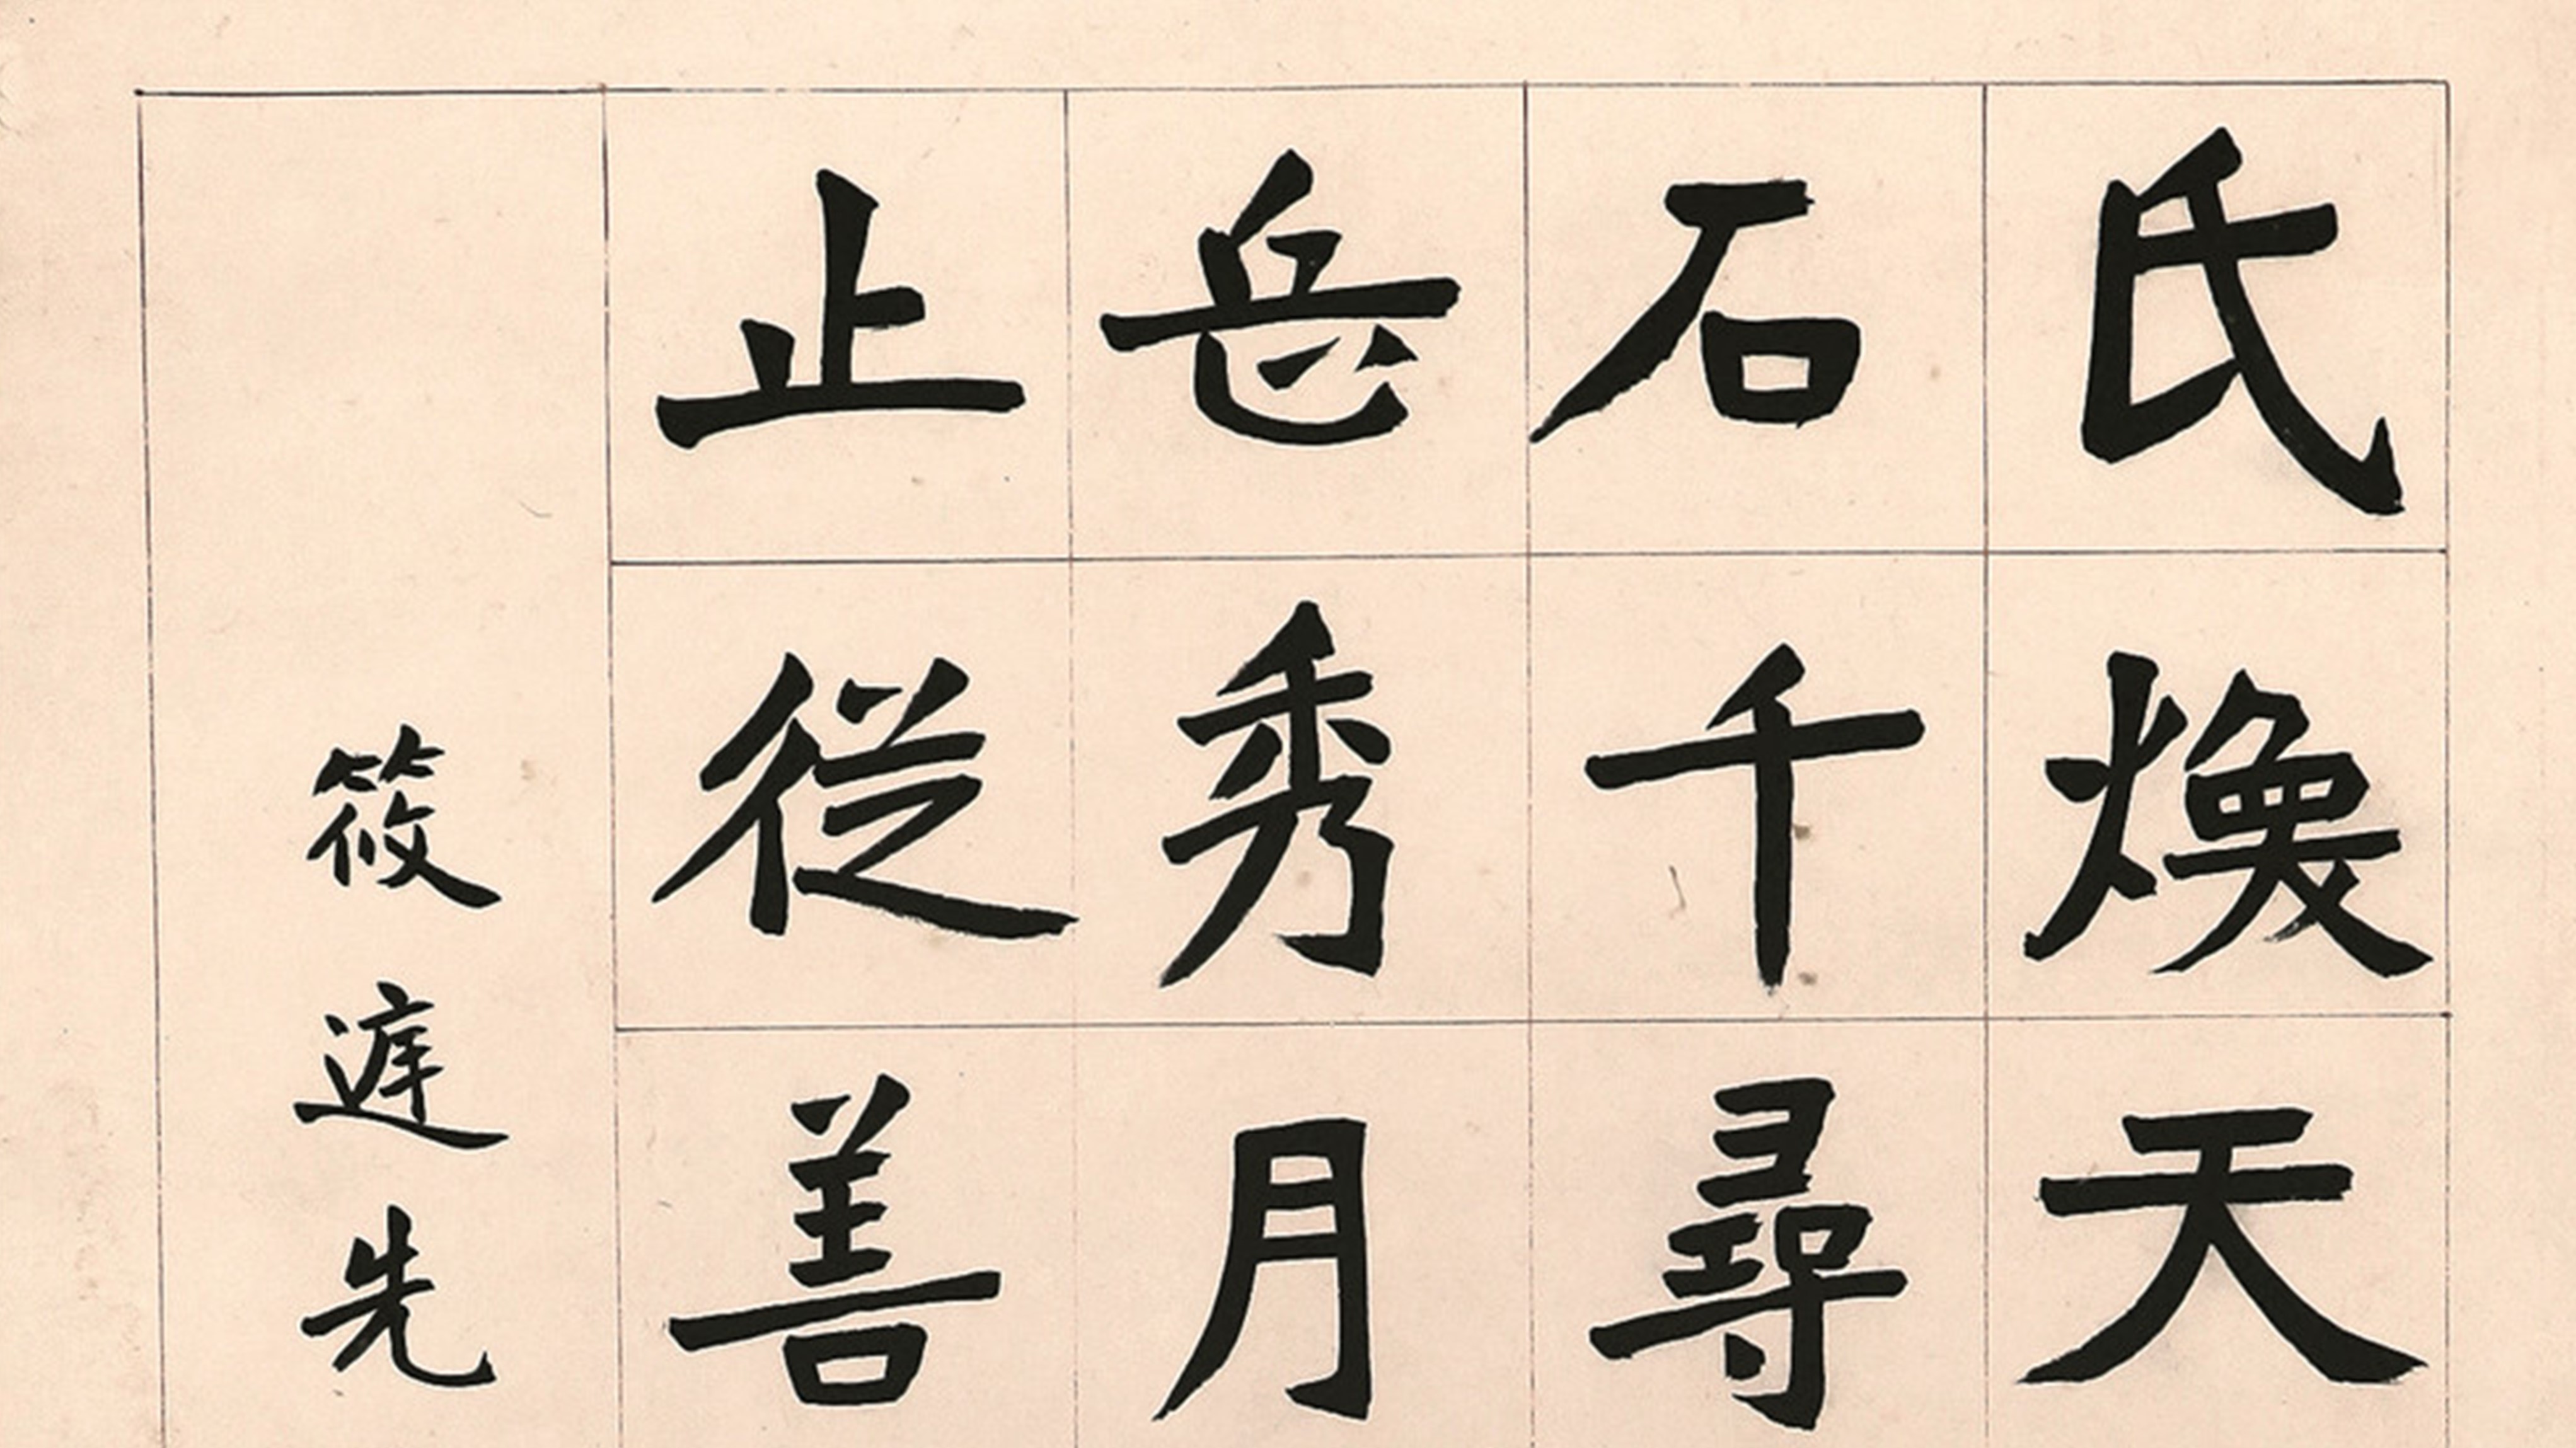 氏煥天
石千尋
岳秀月
止從善
筱遲先